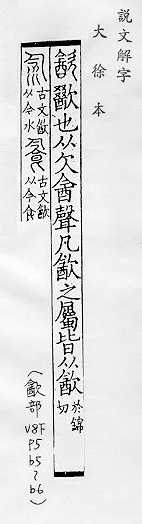 説文解字
大徐本
㱃歠也从欠酓聲凡㱃之屬皆从㱃於錦切
古文㱃从今水
古文㱃从今食
(㱃部 V8下 P5 b5~b6)